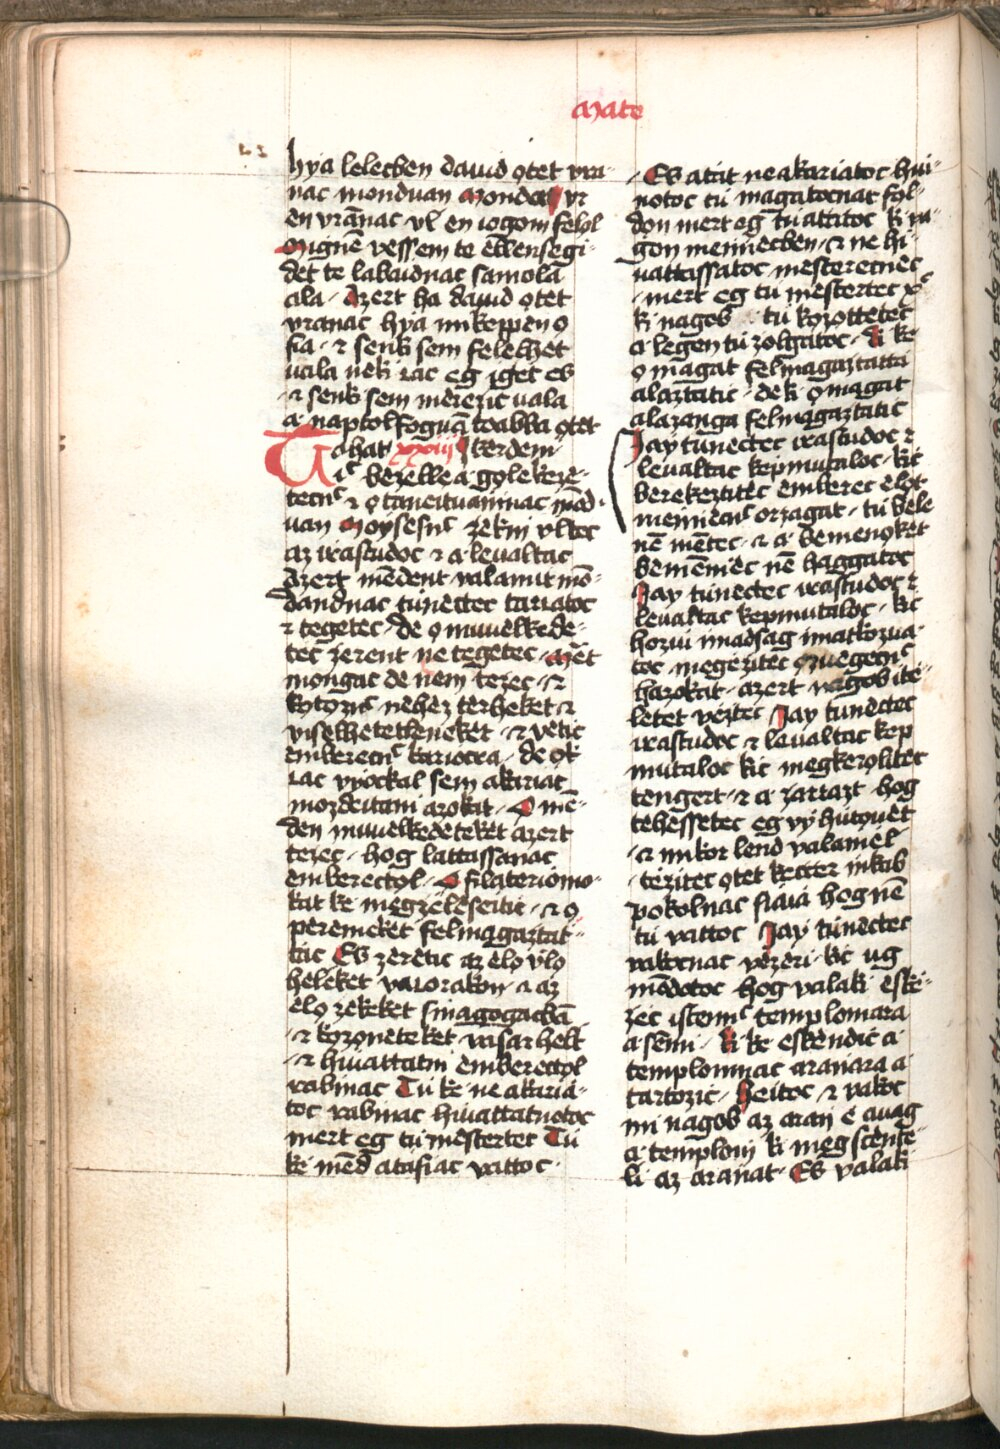 Mate
hya lelecben dauid ọtet vra-
nac monduan Mondot vr
en vrānac vl’ en iogom felọl
Mignē vessem te ellensegi-
det te labaidnac samola
ala · Azert ha dauid ọtet
vranac hya mikeppen ọ
fia · ⁊ senki sem felelhet
uala neki iac eg iget es
⁊ senki sem merezic uala
a naptol foguā toabba ọtet
Tehat xxiij kerdem
ic bezelle a golekeze-
tecnc ⁊ ọ taneituaninac mōd-
uan Moysesnc zekin vltec
az irastudoc ⁊ a leualtac
Azert mēdent valamit mō-
dandnac tūnectec tartatoc
⁊ tegetec · de ọ miuelkede-
tec zerent ne tegetec · Mēt
mongac de nem tezec · ⁊
kọtọznc nehez tèrheket ⁊
viselhetetleneket · ⁊ vètic
emberecnc kariocra · de ọk
iac vyockal sem akariac
mozdeitani azokat · Ọ mē-
den miuelkedeteket azert
tezec · hog lattassanac
emberectọl · Ọ filateriomo-
kat ke megzèleseitic · ⁊ ọ
peremeket felmagaztat-
tac Es zeretic az èlọ vlọ
heleket vaċorakon · ⁊ az
elọ zekeket sinagogacbā
⁊ kọzọneteket vasarhelt
⁊ hiuattatni èmberectọl
rabinac Tū ke ne akaria-
toc rabinac hiuattatnotoc
mert eg tū mèstertec Tū
ke mēd atafiac vattoc ·
Es atāt ne akariatoc hui-
notoc tū magatocnac fọl-
dọn mert eg tū attatoc ki va-
gon mennècben · ⁊ ne hi-
uattassatoc mesterecnec
mert eg tū mèstertec xc
ki nagob tū kọzọttetec
a legen tū zolgatoc · Ki ke
ọ magat felmagaztatta
alaztatic · de ki ọ magat
alazanga felmagaztatic
Jay tūnectec irastudoc ⁊
leualtac kepmutaloc · kic
berekeztitec èmberec èlọt
menniecnc orzagat · tū bèle
nē mentec · ⁊ a bemenọket
bemēniec nē haggatoc
Jay tūnectec irastudoc ⁊
leualtac kepmutaloc · kic
hoziu imadsag imatkozua-
toc megezitec ọzuegecnc
hazokat · azert nagob ite-
letet veztec Jay tūnectec
irastudoc ⁊ leualtac kep
mutaloc kic megkerọlitec
tengert · ⁊ a zarazt hog
tehessetec eg vy hūtọuèt
⁊ mikor lend valamèl
tezitec ọtet kètter inkab
pokolnac fiaia hog nē
tū vattoc Jay tūnectec
vakocnac vezeri · kic ug
mōdotoc hog valaki eskè-
zec istennc templomara
a sèmi · ki ke eskèndic a
templomnac araniara a
tartozic · Beitec ⁊ vakoc
mi nagob az aran è auag
a templom ki megscèntè-
li az aranat · Es valaki